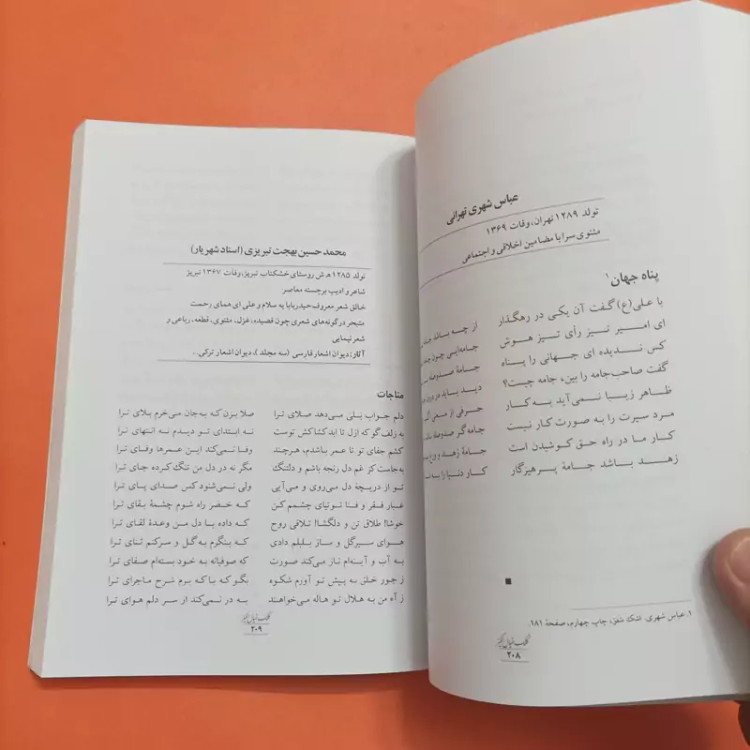 عباس شهری تهرانی
تولد ۱۲۸۹ تهران، وفات ۱۳۶۹
مثنوی سرا با مضامین اخلاقی و اجتماعی
پناه جهان۱
با علی(ع) گفت آن یکی در رهگذار
ای امیر نیز رأی تیز هوش
کس ندیده ای جهانی را پناه
گفت صاحب‌جامه را بین، جامه چیست؟
ظاهر زیبا نمی‌آید به کار
مرد سیرت را به صورت کار نیست
کار ما در راه حق کوشیدن است
زهد باشد جامهٔ پرهیزگار
از چه باشد جامه
جامه‌ایی چون
جامهٔ صدوصله
دید باید در درون
حرفی از معنی
جامه گر صدوصله
جامهٔ زهد و ورع
کار دنیا را به
۱. عباس شهری. اشک شفق، چاپ چهارم، صفحهٔ ۱۸۱.
۲۰۸
محمد حسین بهجت تبریزی (استاد شهریار)
تولد ۱۲۸۵ ه.ش روستای خشکناب تبریز، وفات ۱۳۶۷ تبریز
شاعر و ادیب برجسته معاصر
خالق شعر معروف حیدربابا یه سلام و علی ای همای رحمت
متبحر درگونه‌های شعری چون قصیده، غزل، مثنوی، قطعه، رباعی و
شعر نیمایی
آثار: دیوان اشعار فارسی (سه مجلد)، دیوان اشعار ترکی...
مناجات
دلم جواب بلی می‌دهد صلای ترا صلا بزن که به‌جان می‌خرم بلای ترا
به زلف گو که ازل تا ابد کشاکش توست نه ابتدای تو دیدم نه انتهای ترا
کشم جفای تو تا عمر باشدم، هرچند وفا نمی‌کند این عمرها وفای ترا
به جاست کز غم دل رنجه باشم و دلتنگ مگر نه در دل من تنگ کرده جای ترا
تو از دریچهٔ دل می‌روی و می‌آیی ولی نمی‌شنود کس صدای پای ترا
غبار فقر و فنا توتیای چشمم کن که خضر راه شوم چشمهٔ بقای ترا
خوشا طلاق تن و دلگشا تلافی روح که داده با دل من وعدهٔ لقای ترا
هوای سیرگل و ساز بلبلم دادی که بنگرم به گل و سرکنم ثنای ترا
به آب و آینه‌ام ناز می‌کند صورت که صوفیانه به خود بسته‌ام صفای ترا
ز جور خلق به پیش تو آورم شکوه بگو که با که برم شرح ماجرای ترا
ز آه من به هلال تو هاله می‌خواهند به در نمی‌کند از سر دلم هوای ترا
۲۰۹